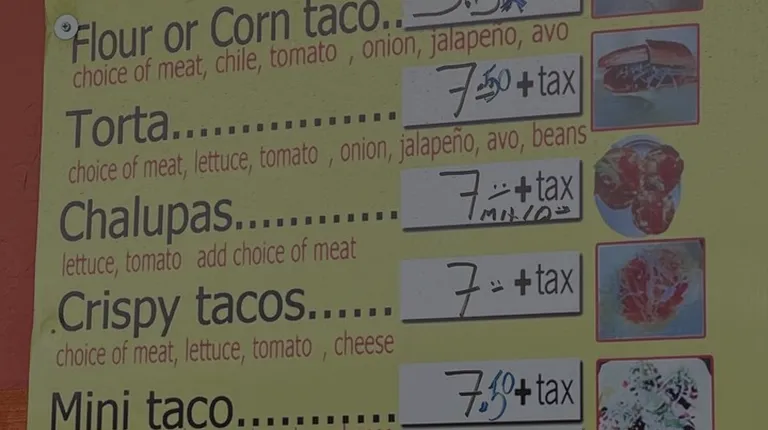 Flour or Corn taco..
choice of meat, chile, tomato , onion, jalapeño, avo
Torta............... 7.50 +tax
choice of meat, lettuce, tomato , onion, jalapeño, avo, beans
Chalupas............ 7 +tax
lettuce, tomato add choice of meat
Crispy tacos...... 7 +tax
choice of meat, lettuce, tomato , cheese
Mini taco........... 7.50 +tax